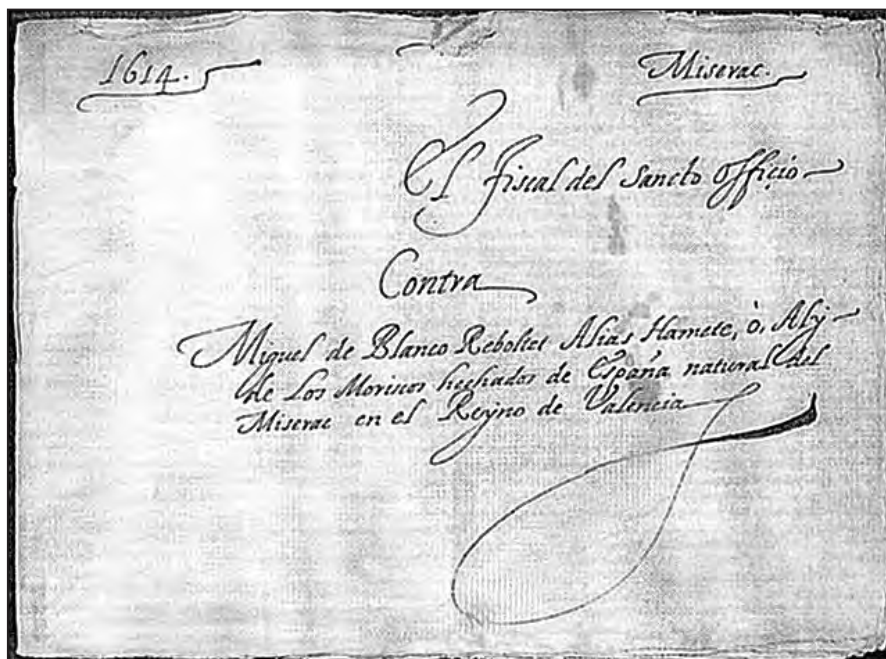 1614.
Miserac.
El fiscal del Sancto Officio
Contra
Miguel de Blanco Reboltet Alias Hamete, ò, Aly
de Los Moriscos hechados de España natural del
Miserac en el Reyno de Valencia